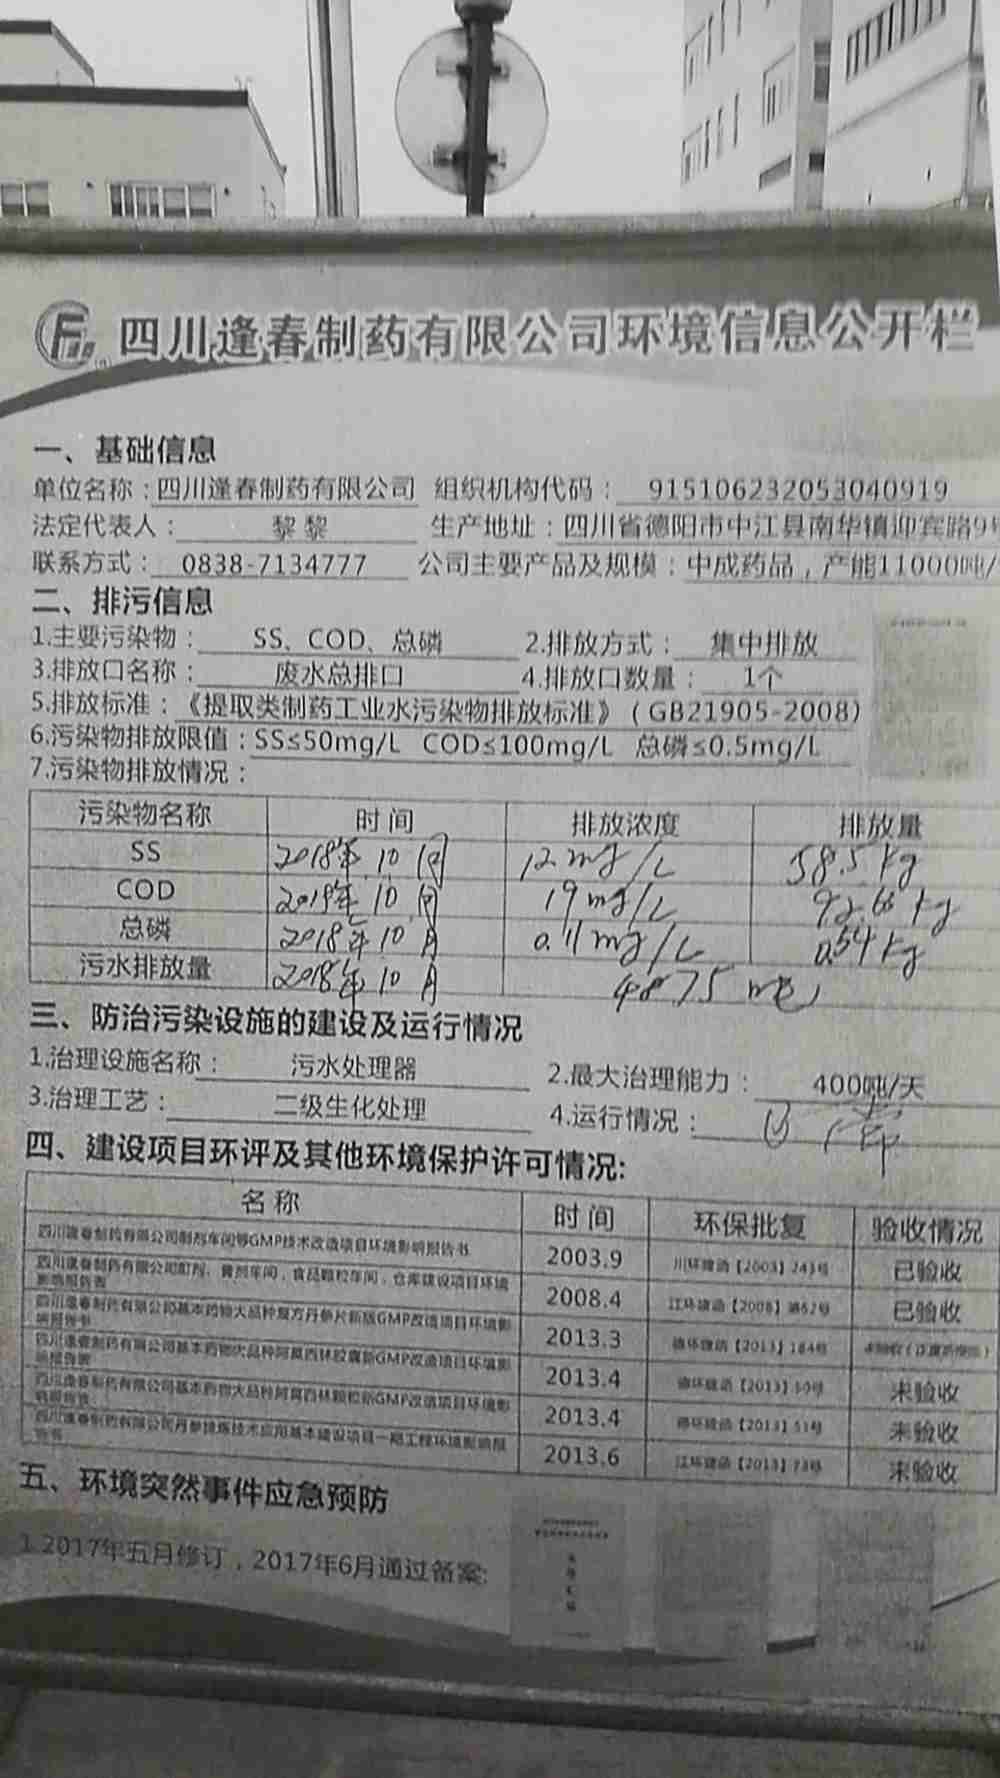 四川逢春制药有限公司环境信息公开栏
一、基础信息
单位名称：四川逢春制药有限公司 组织机构代码：915106232053040919
法定代表人：黎黎 生产地址：四川省德阳市中江县南华镇迎宾路
联系方式：0838-7134777 公司主要产品及规模：中成药品，产能11000吨/
二、排污信息
1.主要污染物：SS、COD、总磷 2.排放方式：集中排放
3.排放口名称：废水总排口 4.排放口数量：1个
5.排放标准：《提取类制药工业水污染物排放标准》（GB21905-2008）
6.污染物排放限值：SS≤50mg/L COD≤100mg/L 总磷≤0.5mg/L
7.污染物排放情况：
污染物名称 时间 排放浓度 排放量
SS 2018年10月 12mg/L 58.5kg
COD 2018年10月 19mg/L 92.66kg
总磷 2018年10月 0.11mg/L 0.54kg
污水排放量 2018年10月 4875吨
三、防治污染设施的建设及运行情况
1.治理设施名称：污水处理器 2.最大治理能力：400吨/天
3.治理工艺：二级生化处理 4.运行情况：
四、建设项目环评及其他环境保护许可情况:
名称 时间 环保批复 验收情况
四川逢春制药有限公司制剂车间够GMP技术改造项目环境影响报告书 2003.9 川环建函【2003】243号 已验收
四川逢春制药有限公司酊剂、膏剂车间，食品颗粒车间，仓库建设项目环境影响报告表 2008.4 江环建函【2008】第62号 已验收
四川逢春制药有限公司基本药物大品种复方丹参片新版GMP改造项目环境影响报告书 2013.3 德环建函【2013】184号 未验收
四川逢春制药有限公司基本药物大品种阿莫西林胶囊新GMP改造项目环境影响报告表 2013.4 德环建函【2013】50号 未验收
四川逢春制药有限公司基本药物大品种阿莫西林颗粒新GMP改造项目环境影响报告表 2013.4 德环建函【2013】51号 未验收
四川逢春制药有限公司丹参提炼技术应用基本建设项目一期工程环境影响报告书 2013.6 江环建函【2013】73号 未验收
五、环境突然事件应急预防
1.2017年五月修订，2017年6月通过备案: